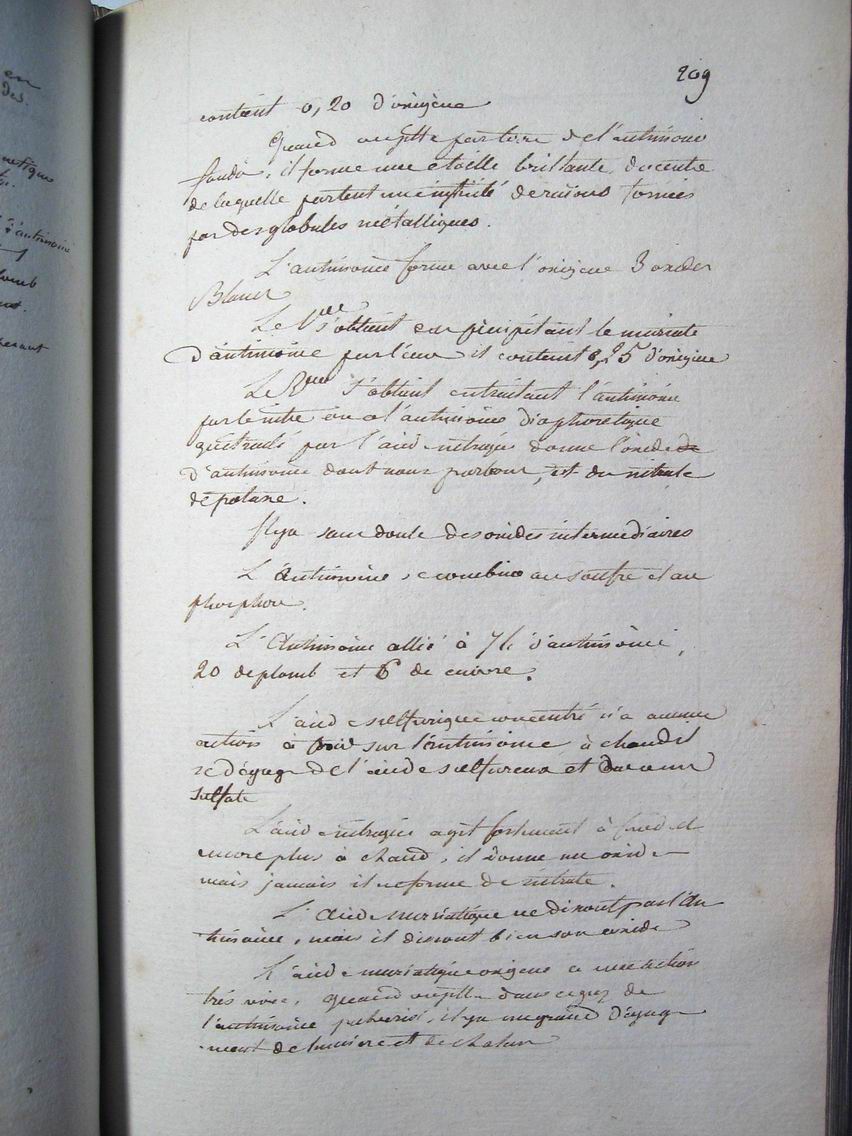 en
des.
209
contient 0,20 d'origène
Quand on jette par terre de l'antimoine
fondu, il forme une étoille brillante, du centre
de laquelle partent une infinité de raïons formés
par des globules métalliques.
L'antimoine forme avec l'origène 3 oxides
Blancs
Le 1er s'obtient en précipitant le muriate
d'antimoine par l'eau il contient 0,25 d'origène
Le 2me s'obtient en traitant l'antimoine
par le nitre on a l'antimoine diaphoretique
qui traité par l'acide nitrique donne l'oxide de
d'antimoine dont nous parlons, et du nitrate
de potasse.
Il y a sans doute des oxides intermediaires
L'antimoine se combine au soufre et au
phosphore.
L'Antimoine allié à 74 d'antimoine,
20 de plomb et 6 de cuivre.
L'acide sulfurique concentré n'a aucune
action à froid sur l'antimoine, à chaud il
se dégage de l'acide sulfureux et aucun
sulfate
L'acide nitrique agit fortement à froid et
encore plus à chaud, il donne un oxide
mais jamais il ne forme de nitrate.
L'acide muriatique ne dissout pas l'An
timoine, mais il dissout bien son oxide
L'acide muriatique origéné a une action
très vive, quand on jette dans ce gaz de
l'antimoine pulverisé, il y a un grand dégage
ment de lumiere et de chaleur